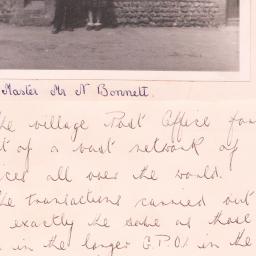 Master Mr N Bonnett.
the village Post Office for
t of a vast network of
ices all over the world.
he transactions carried out
exactly the same as those
in the larger G.P.O. in the